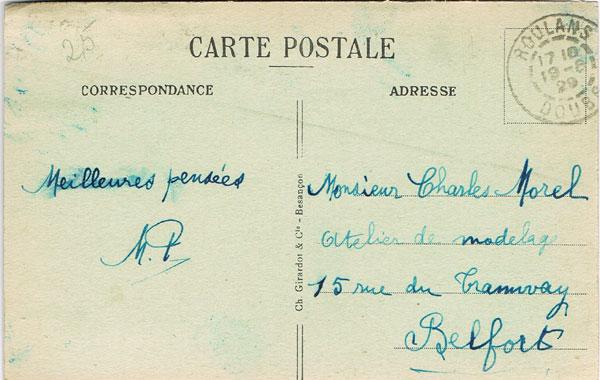 25
CARTE POSTALE
CORRESPONDANCE
ADRESSE
ROULANS
17 10
19 - 6
29
DOUBS
Meilleures pensées
M. P
Ch. Girardot & Cie - Besançon
Monsieur Charles Morel
Atelier de modelage
15 rue du Tramway
Belfort